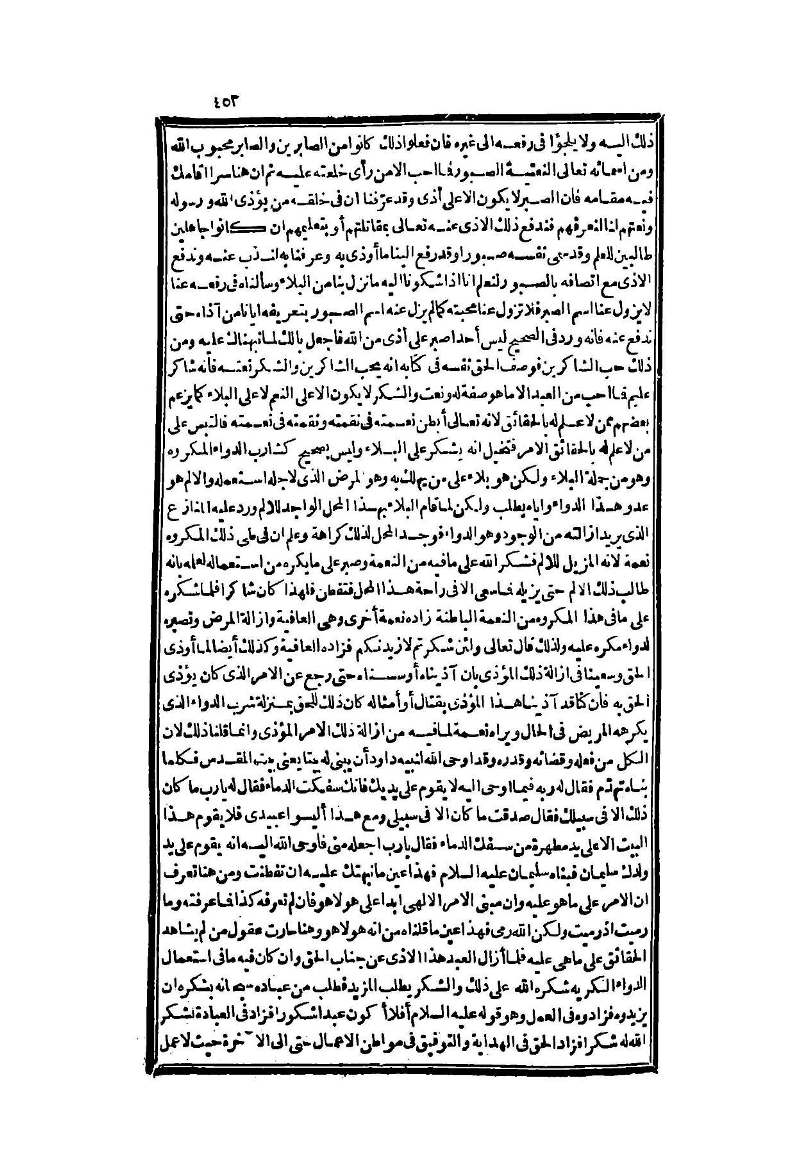 ٤٥٣
ذلك اليه ولا يلجؤا فى رفعه الى غيره فان فعلوا ذلك كانوا من الصابرين والصابر محبوب الله
ومن اسمائه تعالى النعتية الصبور فما احب الا من رأى خلعته عليه ثم ان هنا سرا اقامك
فيه مقامه فان الصبر لا يكون الا على أذى وقد عرّفنا ان فى خلقه من يؤذى الله ورسوله
ونعتهم لنا لنعرفهم فندفع ذلك الاذى عنه تعالى بمقاتلتهم أو بتعليمهم ان كانوا جاهلين
طالبين للعلم وقد سمى نفسه صبورا وقد رفع الينا ما أوذى به وعرفنا به لنذب عنه وندفع
الاذى مع اتصافه بالصبور لنعلم انا اذا شكونا اليه ما نزل بنا من البلاء وسألناه فى رفعه عنا
لا يزول عنا اسم الصبر فلا تزول عنا محبته كما لم يزل عنه اسم الصبور بتعريفه ايانا من آذاه حتى
ندفع عنه فانه ورد فى الصحيح ليس أحد اصبر على أذى من الله فاجعل بالك لما نبهناك عليه ومن
ذلك حب الشاكرين فوصف الحق نفسه فى كتابه انه يحب الشاكرين والشكر نعته فانه شاكر
عليم فما احب من العبد الا ما هو صفة له ونعت والشكر لا يكون الا على النعم لا على البلاء كما يزعم
بعضهم ممن لا علم له بالحقائق لانه تعالى أبطن نعمته فى نقمته ونقمته فى نعمته فالتبس على
من لا علم له بالحقائق الامر فتخيل انه يشكر على البلاء وليس بصحيح كشارب الدواء المكروه
وهو من جملة البلاء ولكن هو بلاء على من يهلك به وهو المرض الذى لاجله استعمله والالم هو
عدو هذا الدواء واياه يطلب ولكن لما قام البلاء بهذا المحل الواجد للالم ورد عليه المنازع
الذى يريد ازالته من الوجود وهو الدواء فوجد المحل لذلك كراهة وعلم ان فى طى ذلك المكروه
نعمة لانه المزيل للالم فشكر الله على ما فيه من النعمة وصبر على ما يكره من استعماله لعلمه بانه
طالب ذلك الالم حتى يزيله فما سعى الا فى راحة هذا المحل فتفطن فلهذا كان شاكرا فلما شكره
على ما فى هذا المكروه من النعمة الباطنة زاده نعمة أخرى وهى العافية وازالة المرض وتصبره
لدواء مكره عليه ولذلك قال تعالى ولئن شكرتم لازيدنكم فزاده العافية وكذلك أيضا لما أوذى
الحق وسعينا فى ازالة ذلك المؤذى بان آذيناه أو سسناه حتى رجع عن الامر الذى كان يؤذى
الحق به فان كنا قد آذينا هذا المؤذى بقتال أو أمثاله كان ذلك للحق بمنزلة شرب الدواء الذى
يكرهه المريض فى الحال ويراه نعمة لما فيه من ازالة ذلك الامر المؤذى وانما قلنا ذلك لان
الكل من فعله وقضائه وقدره وقد اوحى الله لنبيه داود أن يبنى له بيتا يعنى بيت المقدس فكلما
بناه تهدم فقال له ربه فيما اوحى اليه لا يقوم على يديك فانك سفكت الدماء فقال له يا رب ما كان
ذلك الا فى سبيلك فقال صدقت ما كان الا فى سبيلى ومع هذا أليسوا عبيدى فلا يقوم هذا
البيت الا على يد مطهرة من سفك الدماء فقال يا رب اجعله منى فاوحى الله اليه انه يقوم على يد
ولدك سليمان فبناه سليمان عليه السلام فهذا عين ما نبهتك عليه ان تفطنت ومن هنا تعرف
ان الامر على ما هو عليه وان مبنى الامر الالهى ابدا على هو لا هو فان لم تعرفه كذا فما عرفته وما
رميت اذ رميت ولكن الله رمى فهذا عين ما قلناه من انه هو لا هو وهنا حارت عقول من لم يشاهد
الحقائق على ما هى عليه فلما أزال العبد هذا الاذى عن جناب الحق وان كان فيه ما فى استعمال
الدواء الكريه شكره الله على ذلك والشكر يطلب المزيد فطلب من عباده سبحانه بشكره ان
يزيدوه فزادوه فى العمل وهو قوله عليه السلام أفلا أكون عبدا شكورا فزاد فى العبادة لشكر
الله له شكرا فزاد الحق فى الهداية والتوفيق فى مواطن الاعمال حتى الى الآخرة حيث لا عمل